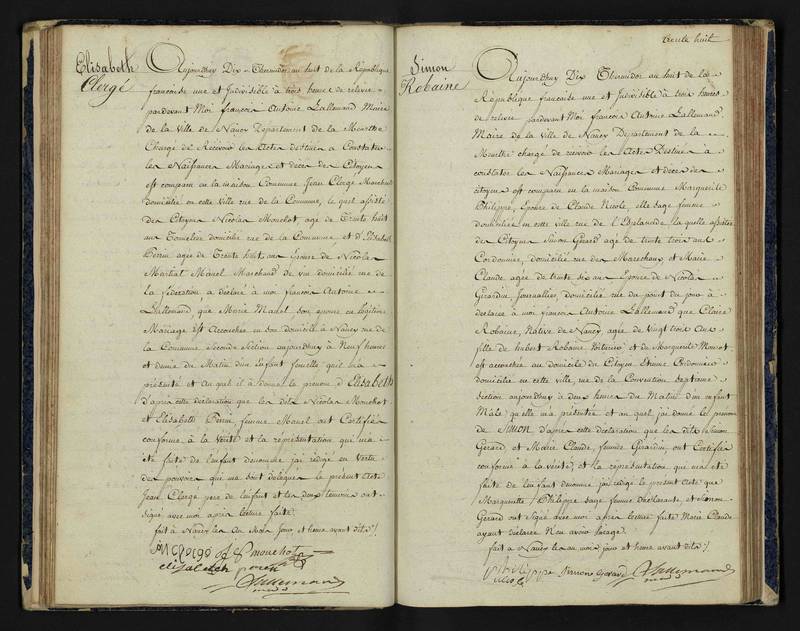 Elisabeth
Clergé
Aujourdhuy Dix Thermidor an huit de la République
francaise une et Indivisible à trois heures de relevée
pardevant Moi francois Antoine Lallemand Maire
de la Ville de Nancy Departement de la Meurthe
Chargé de Recevoir les Actes destinés a Constater
les Naissances Mariages et décès des Citoyens
est comparu en la maison Commune Jean Clergé Marchand
domicilié en cette ville rue de la Commune, le quel assisté
des Citoyens Nicolas Mouchot agé de Trente huit
ans Tonnelier domicilié rue de la Commune, et d'Elisabeth
Perrin agée de Trente huit ans Epouse de Nicolas
Martial Marchand de vin domicilié rue de
la fédération a déclaré à moi francois Antoine
Lallemand, que Marie Madel son épouse en légitime
Mariage Est Accouchée en son domicile à Nancy rue de
la Commune Seconde Section aujourdhuy à Neuf heures
et demie du Matin d'un Enfant femelle quil m'a
présenté et Au quel il à donné le prénom d'Elisabeth
d'après cette déclaration que les dits Nicolas Mouchot
et Elisabeth Perrin femme ont Certifiée
conforme à la Vérité et la représentation qui m'a
été faite de l'enfant denommé jai rédigé en Vertu
des pouvoirs qui me sont délégués le présent Acte
Jean Clergé pere de l'enfant et les deux temoins ont
Signé avec moi après lecture faite
fait à Nancy les An Mois Jour et heure avant dits
Mouchot
elisabeth perin
Lallemand
trente huit
Simon
Robaine
Aujourdhuy Dix Thermidor an huit de la
République francaise une et Indivisible à trois heures
de relevée pardevant Moi francois Antoine Lallemand
Maire de la ville de Nancy Departement de la
Meurthe chargé de recevoir les Actes Destinés à
constater les Naissances Mariages et décès des
citoyens est comparu en la maison Commune Marguerite
Philippe, Epouse de Claude Nicole, elle sage femme
domiciliée en cette ville rue de l'Esplanade la quelle assistée
des Citoyens Simon Gerard agé de trente trois ans
Cordonnier, domicilié rue des Marechaux et Marie
Claude agée de trente six ans Epouse de Nicolas
Girardin Journallier, domicilié rue du point du jour à
declaré à moi francois Antoine Lallemand que Claire
Robaine, Native de Nancy agée de Vingt trois ans
fille de hubert Robaine Voiturier et de Marguerite
est accouchée au domicile du Citoyen Etienne Cordonnier
domicilié en cette ville, rue de la Convention septieme
Section aujourdhuy à deux heures du Matin d'un enfant
Mâle qu'elle m'a présenté et au quel j'ai donné les prenom
de SIMON d'après cette déclaration que les dits Simon
Gerard et Marie Claude, femme Girardin, ont Certifiée
conforme à la verité, et la représentation qui m'a été
faite de l'enfant denommé, jai rédigé le present Acte que
Marguerite Philippe sage femme declarante, et Simon
Gerard ont Signé avec moi après lecture faite Marie Claude
ayant déclaré N'en avoir l'usage
fait à Nancy les an mois jours et heure avant dits
Philippe
Simone Gerard Lallemand